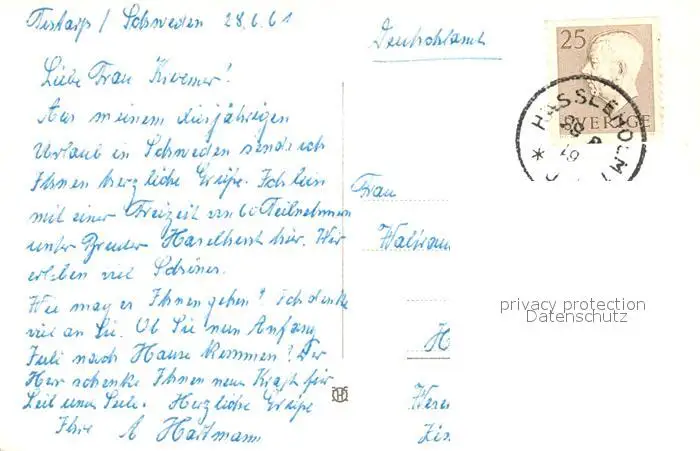 Schweden 28.6.61
Deutschland
25
SVERIGE
HÄSSLEHOLM
Liebe Frau
Aus meinem diesjährigen
Urlaub in Schweden sende ich
Ihnen herzliche Grüße. Ich bin
mit einer Freizeit von 60 Teilnehmern
unter Bruder Haselhorst hier. Wir
erleben viel Schönes.
Wie mag es Ihnen gehen? Ich denke
viel an Sie. Ob Sie nun Anfang
Juli nach Hause kommen? Der
Herr schenke Ihnen neue Kraft für
Leib und Seele. Herzliche Grüße
Ihre A Hartmann
Frau
Waltrau
H
privacy protection
Datenschutz